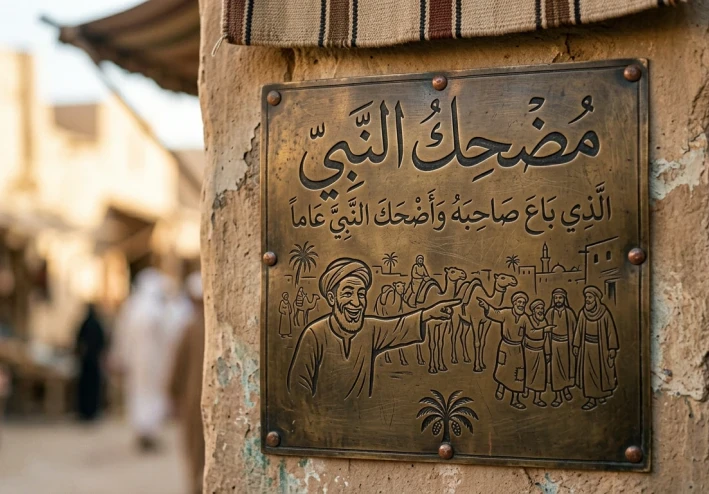 مُضْحِكُ النَّبِيِّ
الَّذِي بَاعَ صَاحِبَهُ وَأَضْحَكَ النَّبِيَّ عَاماً